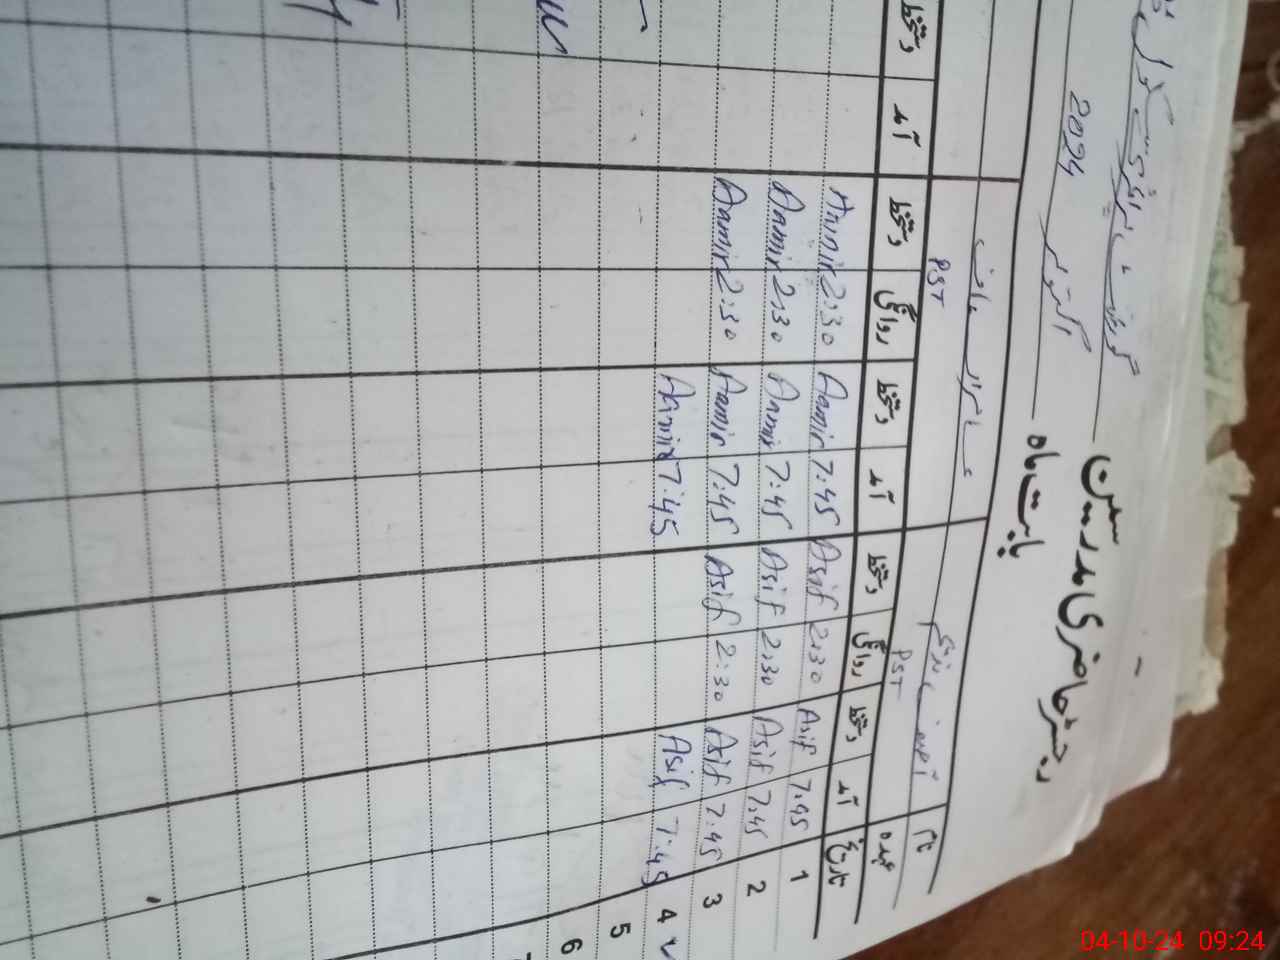 رجسٹر حاضری مدرسین گورنمنٹ پرائمری سکول
بابت ماہ اکتوبر 2024
نام آصف نذیر
عہدہ PST PST
تاریخ آمد دستخط روانگی دستخط آمد دستخط روانگی دستخط آمد دستخط
1 7:45 Asif 2:30 Asif 7:45 Aamir 2:30 Aamir
2 7:45 Asif 2:30 Asif 7:45 Aamir 2:30 Aamir
3 7:45 Asif 2:30 Asif 7:45 Aamir 2:30 Aamir
4 7:45 Asif 7:45 Aamir
5
6
04-10-24 09:24